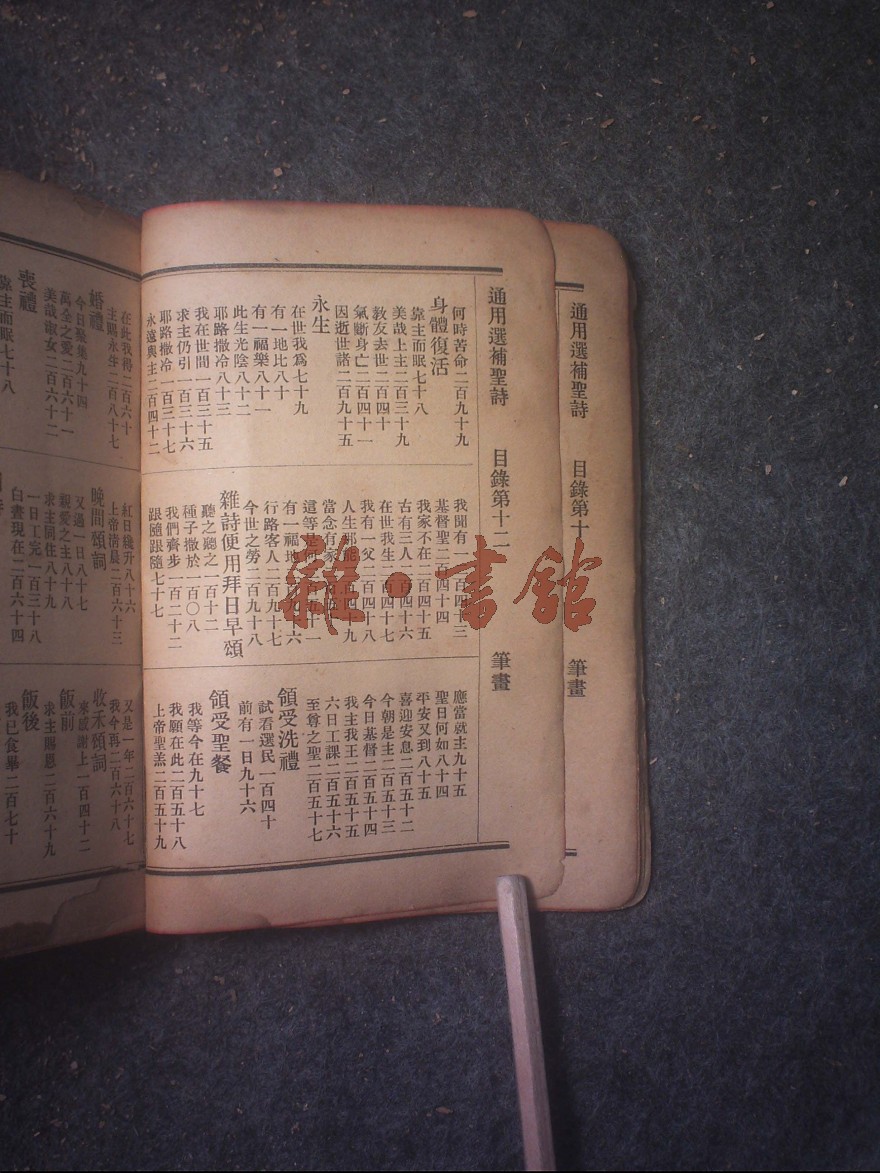 通用選補聖詩 目錄第十 筆畫
通用選補聖詩 目錄第十二 筆畫
何時苦命二百九十九
身體復活
靠主而眠七十八
美哉上主二百三十九
教友去世二百四十
氣斷身亡二百四十一
因逝世諸二百九十五
永生
在世我為七十九
有一地比八十
有一福樂八十一
此生光陰八十二
耶路撒冷八十三
我在世間一百三十五
求主仍引一百三十六
耶路撒冷一百三十七
永遠與主二百四十二
我聞有一二百四十三
基督聖二百四十四
我家不在二百四十五
古有三人二百四十六
在世我生二百四十七
我有一父二百四十八
人生那能二百四十九
當念有家
這等是何
有一福地
行路客人二百九十七
今世之勞二百九十八
雜詩便用拜日早頌
聽之聽之一百十二
種子撒於一百〇八
我們齊步一百二十二
跟隨跟隨七十七
應當就主九十五
聖日何如八十四
平安又到八十五
喜迎安息二百五十二
今朝是主二百五十三
今日基督二百五十四
我主我王二百五十五
六日工課二百五十六
至尊之聖二百五十七
領受洗禮
試看選民一百四十
前有一日九十六
領受聖餐
我等今在九十七
我願在此二百五十八
上帝聖羔二百五十九
在此我得二百六十
主賜永生二百八十七
婚禮
今日聚集九十四
萬全之愛二百六十一
美哉淑女二百六十二
喪禮
靠主而眠七十八
紅日纔升八十六
上帝清晨二百六十三
晚間頌詞
又過一日八十七
親愛之主八十八
求主同住八十九
一日工完一百三十八
白晝現在二百六十四
又是一年二百六十七
我今再二百六十八
收禾頌詞
來感謝上一百四十二
飯前
求主賜恩二百六十九
飯後
我已食畢二百七十
雜·書館